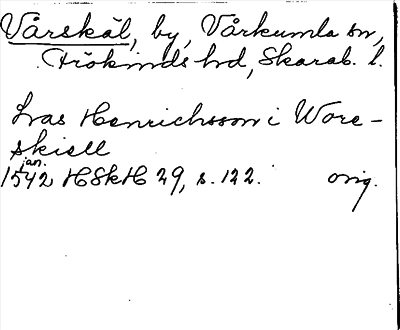 Vårskäl, by, Vårkumla sn,
Frökinds hd, Skarab. l.
Lras Henrichsson i Wore-
skiell
jan.
1542 HSkH 29, s. 122. orig.